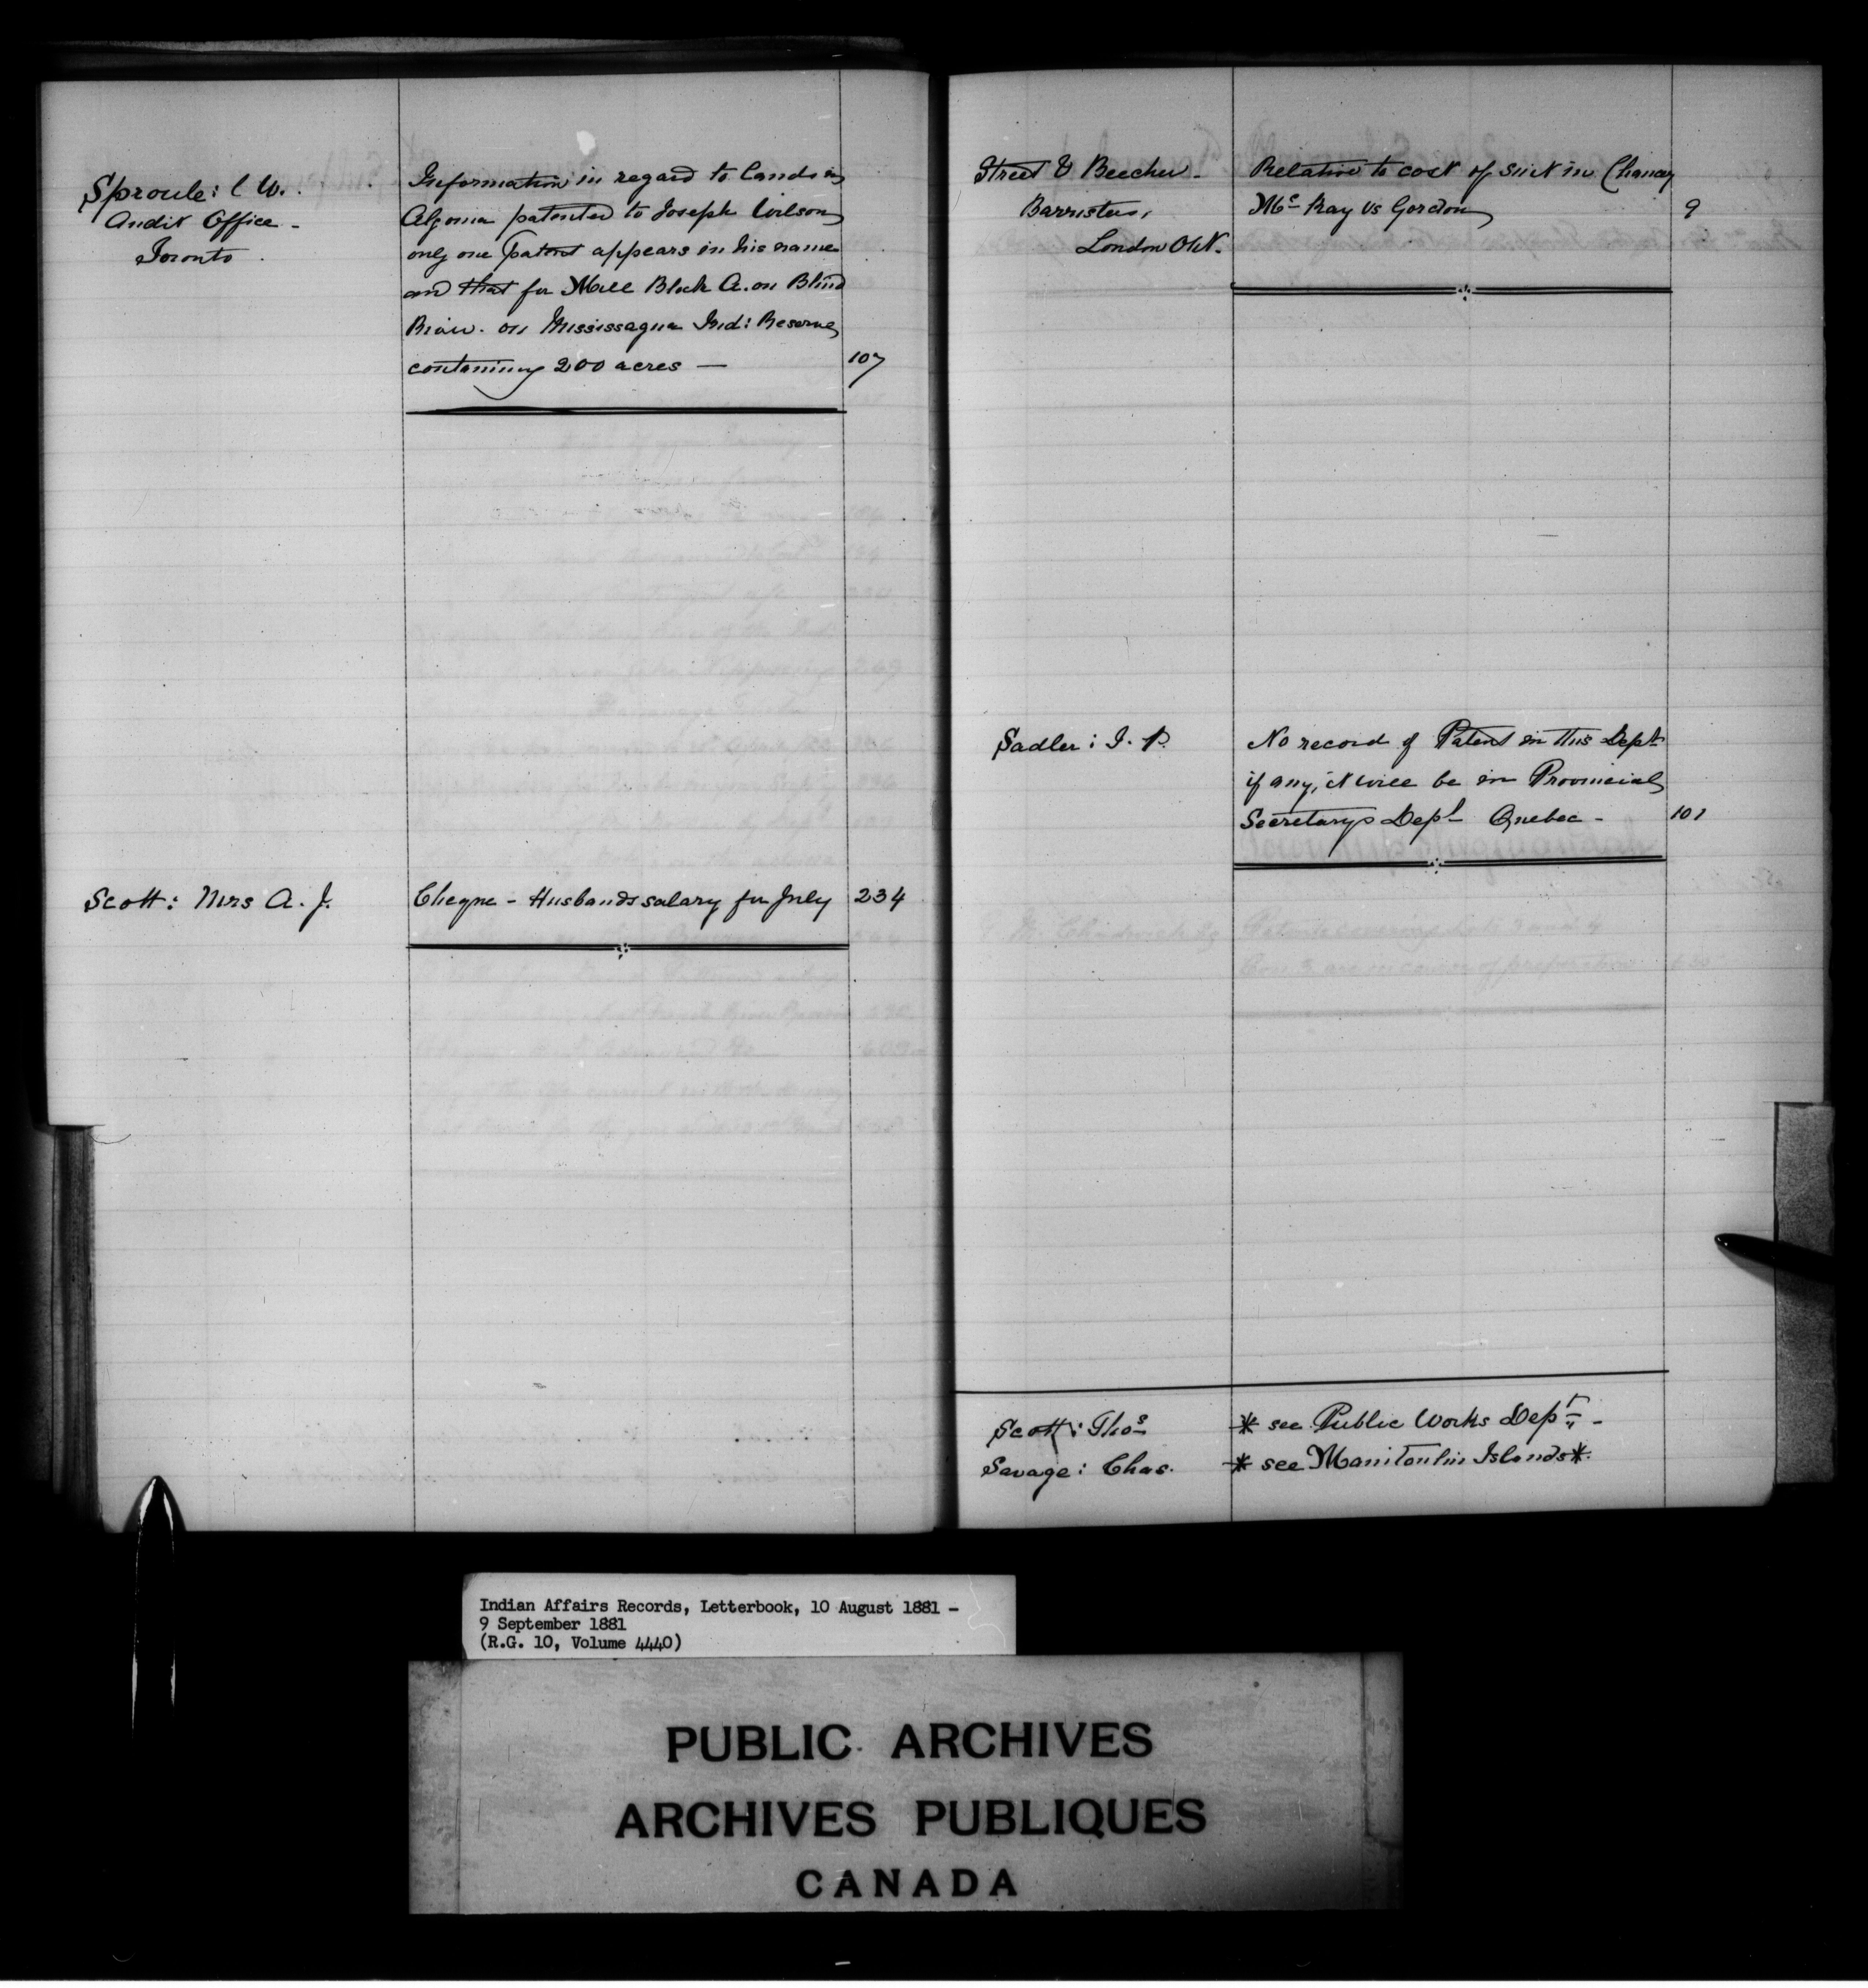 Sproule: C W.
Audit Office -
Toronto.
Information in regard to Lands in
Algoma patented to Joseph Wilson
only one Patent appears in his name
and that for Mill Block A. on Blind
River. on Mississagua Ind: Reserve
containing 200 acres —
107
Scott: Mrs A. J.
Cheque - Husbands salary for July
234
Street & Beecher -
Barristers,
London Ont.
Relative to cost of suit in Chancy
Mc Kay vs Gordon
9
Sadler: J. P.
No record of Patent in this Dept
if any, it will be in Provincial
Secretarys Dept Quebec -
101
Scott: Thos
* see Public Works Dept -
Savage: Chas.
* see Manitoulin Islands *
Indian Affairs Records, Letterbook, 10 August 1881 -
9 September 1881
(R.G. 10, Volume 4440)
PUBLIC ARCHIVES
ARCHIVES PUBLIQUES
CANADA